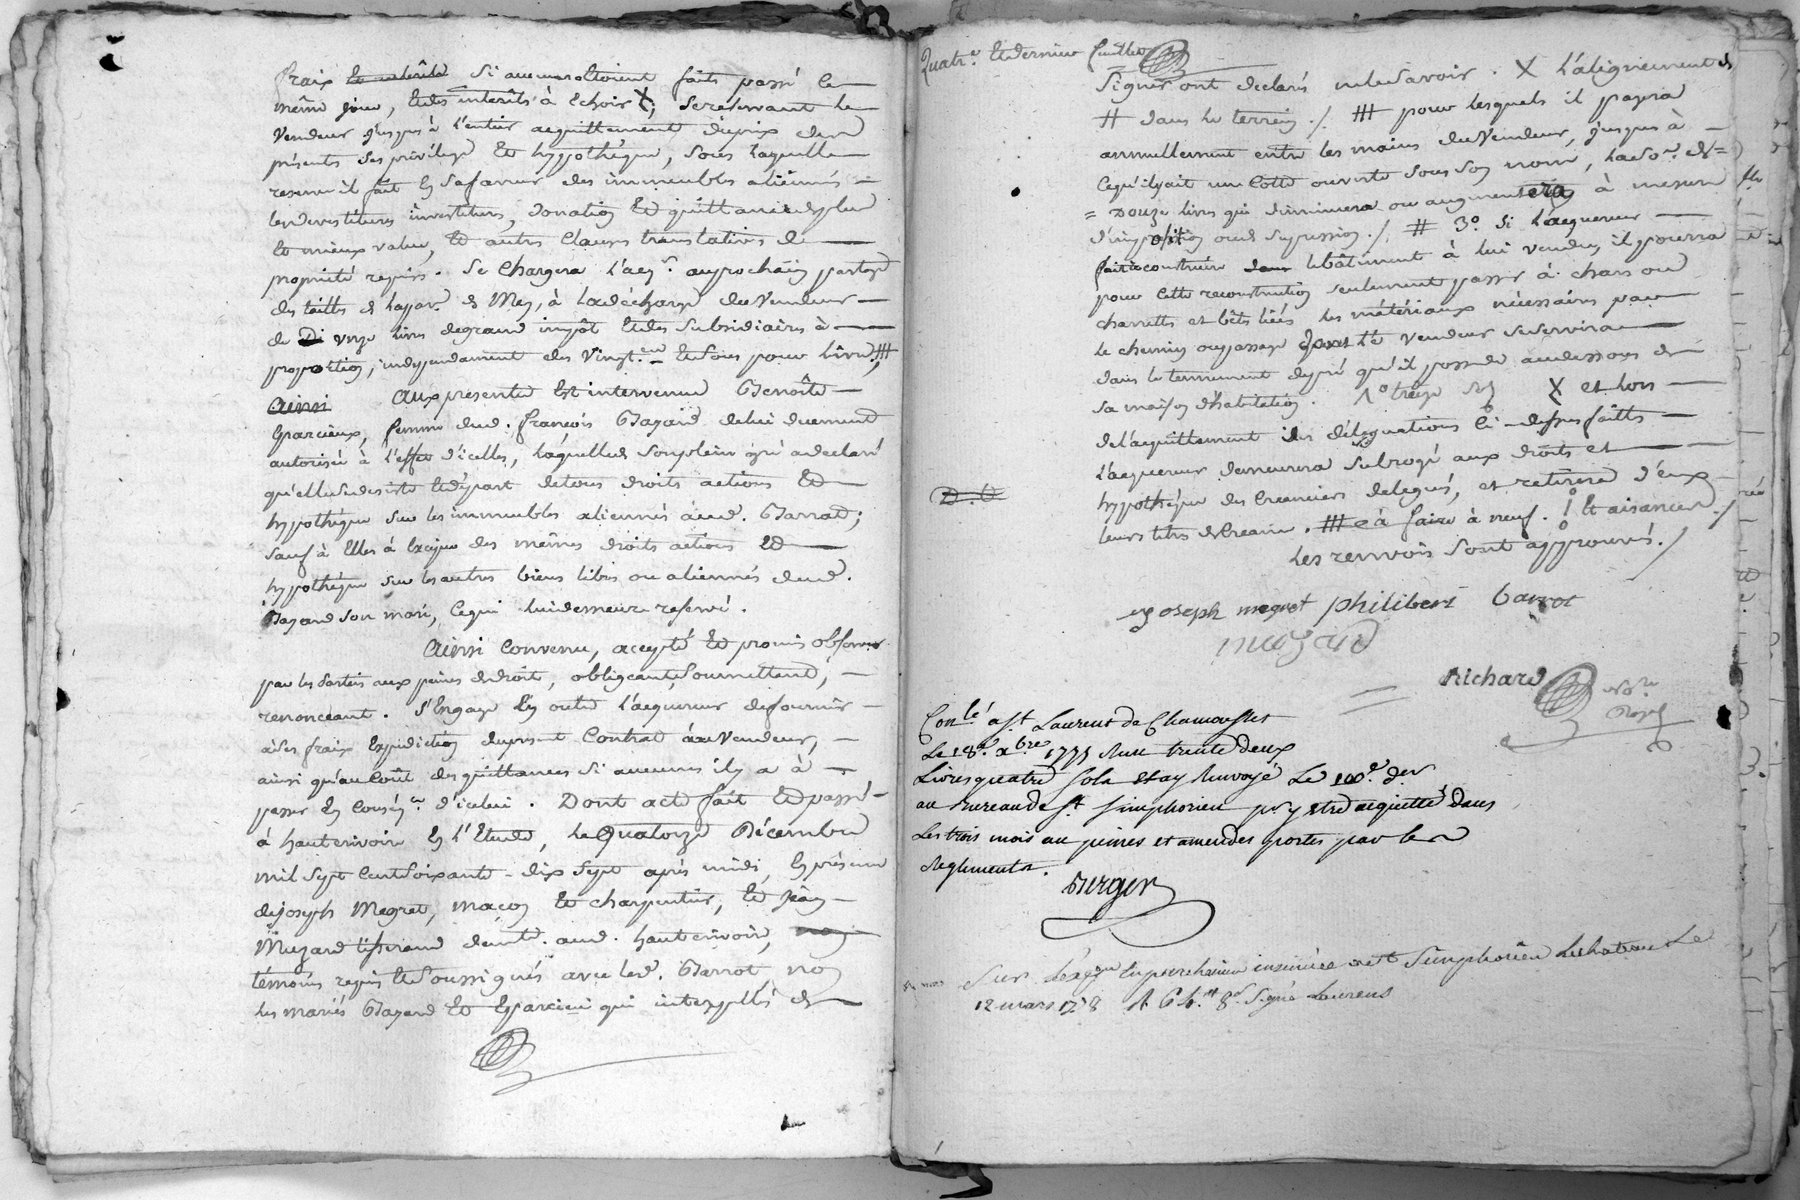 frais et intérêts si aucuns etoient faits passé le
même jour, et des intérêts à echoir X, se reservant le
Vendeur jusques à l'entier acquittement du prix des
présentes ses privilege et hypothéque, sous laquelle
reserve il fait en sa faveur des immeubles aliénnés
les devestitures investitures, donation et quittance de plus
et mieux value, et autres clauses translatives de
propriété requises. Se chargera l'acqr. au prochain partage
des tailles de de Mey, à la décharge du Vendeur
de onze livres de grand impôt et des subsidiaires à
proportion, independament des Vingt.eme et sous pour livre, ///
Ainsi Aux presentes Est intervenue Benoîte
Gparcieux, femme dud. françois Bazard de lui duement
autorisée à l'effet d'icelles, laquelle de son plein gré a declaré
qu'elle se desiste et départ de tous droits actions et
hypothéque sur les immeubles aliennés aud. Barrot;
sauf à Elle à Exciper des mêmes droits actions et
hypothéque sur les autres biens libres ou aliennés dud.
Bazard son mari, ce qui lui demeure reservé.
Ainsi convenu, accepté et promis observer
par les parties aux peines de droits, obligeant, Soumettant,
renonceant. S'Engage En outre l'acquereur de fournir
à ses frais Expedition du present Contrat au Vendeur,
ainsi qu'au coût des quittances si aucunes il y a à
passer En conséq.ce d'icelui. Dont acte fait et passé
à hauterivoire En l'Etude, le Quatorze Décembre
mil sept cent soixante-dix sept après midi, En présence
de joseph Megret, maçon et charpentier, et jean
Muzard tisserand demt. aud. hauterivoire,
témoins requis et soussignés avec led. Barrot, non
les mariés Bazard et Gparcieu qui interpellés de
Quatr.e et dernier feuillet
Signer ont declarés ne le savoir. X L'alignement de
# dans le terrein ./. /// pour lesquels il payera
annuellement entre les mains du Vendeur, jusques à
ce qu'il y ait une Cotte ouverte sous son nom, la so.e de =
= Douze livres qui diminuera ou augmentera à mesure
d'imposition ou de supression ./. # 3.o si l'acquereur
fait reconstruire le bâtiment à lui vendu, il pourra
pour cette reconstruction seulement passer à chars ou
charrettes et bêts liés les mátériaux nécessaires par
le chemin ou passage dont le vendeur se servira
dans le tennement de pré qu'il possede audessous de
sa maison d'habitation. X et lors
de l'acquittement des délegations ci-dessus faittes
l'acquereur demeurera subrogé aux droits et
hypothéque des Creanciers delegués, et retirera d'eux
leurs titres de Creance. /// à faire à neuf. ! Et aisances ./
Les renvois sont approuvés ./
Joseph megret philibert barrot
muzard
Richard No.re
Royal
Conlé a St. Laurent de Chamousset
Le 18.e xbre 1777 Reçu trente deux
Livres quatre sols et ay Renvoyé Le 100.e der
au Bureau de St. Simphorien pr y etre aquitté dans
Les trois mois au peines et amendes portés par les
Reglements.
Berger
insinuée a St Simphorien Le chateau Le
12 mars 1778 R 6 lt. 8 s. Signé Laurens